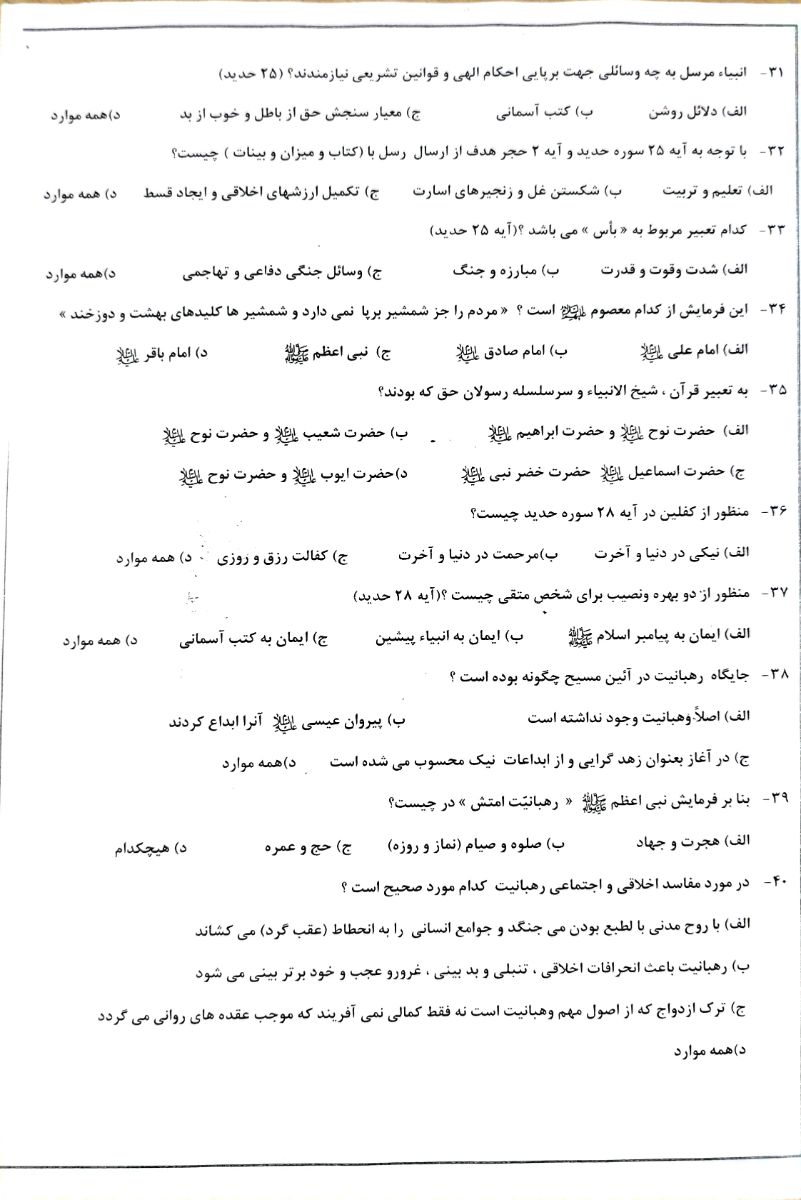 ۳۱- انبیاء مرسل به چه وسائلی جهت برپایی احکام الهی و قوانین تشریعی نیازمندند؟ (۲۵ حدید)
الف) دلائل روشن ب) کتب آسمانی ج) معیار سنجش حق از باطل و خوب از بد د)همه موارد
۳۲- با توجه به آیه ۲۵ سوره حدید و آیه ۲ حجر هدف از ارسال رسل با (کتاب و میزان و بینات ) چیست؟
الف) تعلیم و تربیت ب) شکستن غل و زنجیرهای اسارت ج) تکمیل ارزشهای اخلاقی و ایجاد قسط د) همه موارد
۳۳- کدام تعبیر مربوط به « بأس » می باشد ؟(آیه ۲۵ حدید)
الف) شدت وقوت و قدرت ب) مبارزه و جنگ ج) وسائل جنگی دفاعی و تهاجمی د)همه موارد
۳۴- این فرمایش از کدام معصوم علیه السلام است ؟ « مردم را جز شمشیر برپا نمی دارد و شمشیر ها کلیدهای بهشت و دوزخند »
الف) امام علی علیه السلام ب) امام صادق علیه السلام ج) نبی اعظم ﷺ د) امام باقر علیه السلام
۳۵- به تعبیر قرآن ، شیخ الانبیاء و سرسلسله رسولان حق که بودند؟
الف) حضرت نوح علیه السلام و حضرت ابراهیم علیه السلام ب) حضرت شعیب علیه السلام و حضرت نوح علیه السلام
ج) حضرت اسماعیل علیه السلام حضرت خضر نبی علیه السلام د)حضرت ایوب علیه السلام و حضرت نوح علیه السلام
۳۶- منظور از کفلین در آیه ۲۸ سوره حدید چیست؟
الف) نیکی در دنیا و آخرت ب)مرحمت در دنیا و آخرت ج) کفالت رزق و روزی د) همه موارد
۳۷- منظور از دو بهره ونصیب برای شخص متقی چیست ؟(آیه ۲۸ حدید)
الف) ایمان به پیامبر اسلام ﷺ ب) ایمان به انبیاء پیشین ج) ایمان به کتب آسمانی د) همه موارد
۳۸- جایگاه رهبانیت در آئین مسیح چگونه بوده است ؟
الف) اصلاً وهبانیت وجود نداشته است ب) پیروان عیسی علیه السلام آنرا ابداع کردند
ج) در آغاز بعنوان زهد گرایی و از ابداعات نیک محسوب می شده است د)همه موارد
۳۹- بنا بر فرمایش نبی اعظم ﷺ « رهبانیّت امتش » در چیست؟
الف) هجرت و جهاد ب) صلوه و صیام (نماز و روزه) ج) حج و عمره د) هیچکدام
۴۰- در مورد مفاسد اخلاقی و اجتماعی رهبانیت کدام مورد صحیح است ؟
الف) با روح مدنی با لطبع بودن می جنگد و جوامع انسانی را به انحطاط (عقب گرد) می کشاند
ب) رهبانیت باعث انحرافات اخلاقی ، تنبلی و بد بینی ، غرورو عجب و خود برتر بینی می شود
ج) ترک ازدواج که از اصول مهم وهبانیت است نه فقط کمالی نمی آفریند که موجب عقده های روانی می گردد
د)همه موارد